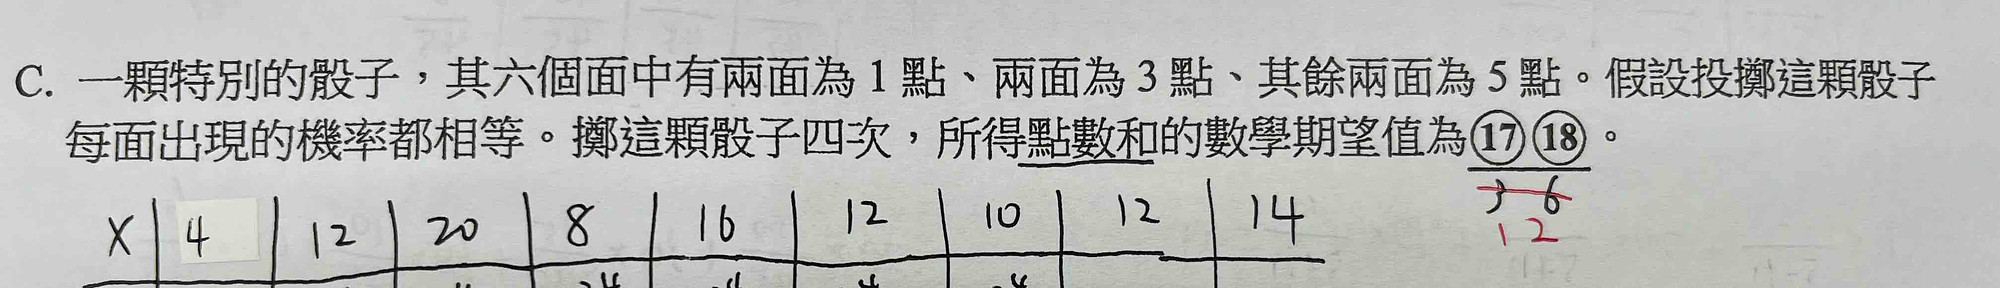 C. 一顆特別的骰子，其六個面中有兩面為 1 點、兩面為 3 點、其餘兩面為 5 點。假設投擲這顆骰子
每面出現的機率都相等。擲這顆骰子四次，所得點數和的數學期望值為⑰⑱。
3 6
12
X 4 12 20 8 16 12 10 12 14